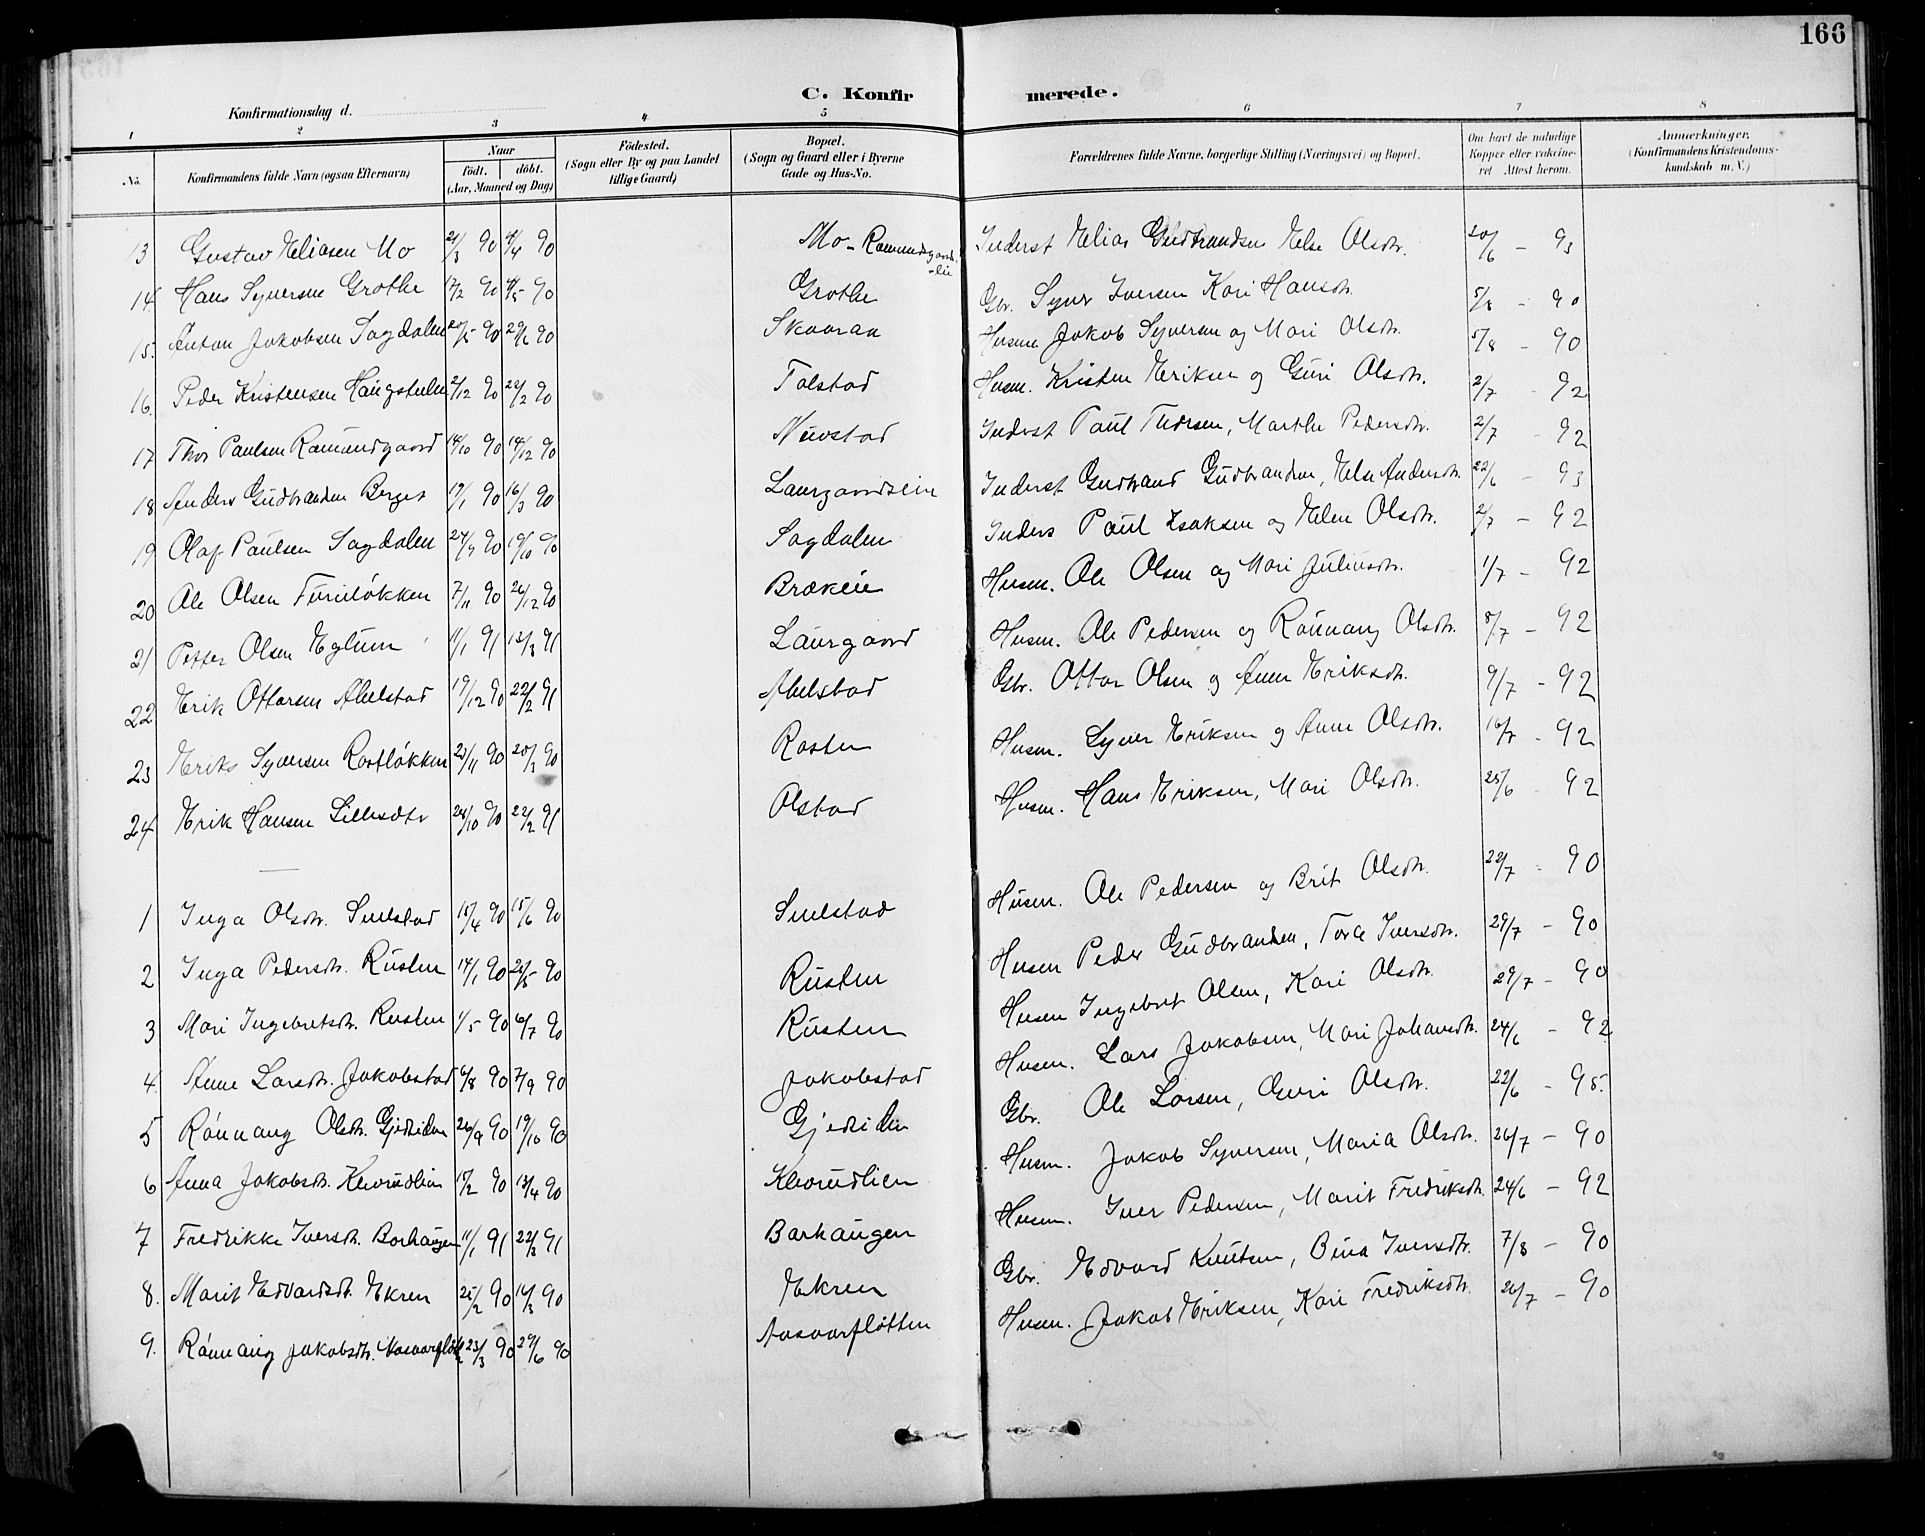 166
C. Konfirmerede.
Konfirmationsdag d.
1 2 3 4 5 6 7 8
No. Konfirmandens fulde Navn (ogsaa Efternavn) Naar födt. döbt. (Aar, Maaned og Dag) Födested. (Sogn eller By og paa Landet tillige Gaard) Bopæl. (Sogn og Gaard eller i Byerne Gade og Hus-No. Forældrenes fulde Navne, borgerlige Stilling (Næringsvei) og Bopæl. Om havt de naturlige Kopper eller vakcineret. Attest herom. Anmærkninger. (Konfirmandens Kristendomskundskab m. V.)
13 Gustav Eliasen Mo 21/3 90 4/4 90 Mo - Romundgaardslie Inderst Elias Gudbrandsen Else Olsdtr. 20/6 - 93
14 Hans Syversen Grothe 17/2 90 4/5 90 Grothe Gbr. Syver Iversen Kari Hansdtr. 5/8 - 90
15. Anton Jakobsen Sagdalen 20/5 90 29/6 90 Skaaraa Husm. Jakob Syversen og Mari Olsdtr. 5/8 - 90
16. Peder Kristensen 2/12 90 22/2 90 Tolstad Husm. Kristen Eriksen og Guri Olsdtr. 2/7 - 92
17 Thor Paulsen Romundgaard 14/10 90 14/12 90 Inderst Paul Thorsen, Marthe Pedersdtr. 2/7 - 92
18 Anders Gudbrandsen Berget 19/1 90 16/3 90 Laurgaardseie Inderst Gudbrand Gudbrandsen, Else Andersdtr. 22/6 - 93
19 Olaf Paulsen Sagdalen 24/9 90 19/10 90 Sagdalen Inders Paul Isaksen og Elen Olsdtr. 2/7 - 92
20 Ole Olsen Furuløkken 7/11 90 26/12 90 Brækeie Husm. Ole Olsen og Mari Juliusdtr. 1/7 - 92
21 Petter Olsen Eglum 11/1 91 13/3 91 Laurgaard Husm. Ole Pedersen og Rønnaug Olsdtr. 8/7 - 92
22 Erik Ottarsen Ahlstad 19/12 90 22/2 91 Ahlstad Gbr. Ottar Olsen og Anne Eriksdtr. 9/7 - 92
23 Eriks Syversen Rostløkken 21/11 90 20/3 90 Rosten Husm. Syver Eriksen og Anne Olsdtr. 16/7 - 92
24 Erik Hansen 24/10 90 22/2 91 Olstad Husm. Hans Eriksen, Mari Olsdtr. 25/6 - 92
1 Inga Olsdtr. Snelstad 15/4 90 15/6 90 Snelstad Husm. Ole Pedersen og Brit Olsdtr. 22/7 - 90
2 Inga Pedersdtr. Rusten 14/1 90 25/5 90 Rusten Husm Peder Gudbrandsen, Tora Iversdtr. 29/7 - 90
3 Mari Ingebretsdtr. Rusten 1/5 90 6/7 90 Rusten Husm Ingebret Olsen, Kari Olsdtr. 29/7 - 90
4. Anne Larsdtr. Jakobstad 6/8 90 7/9 90 Jakobstad Husm. Lars Jakobsen, Mari Johansdtr. 24/6 - 92
5 Rønnaug Olsdtr. Gjetsiden 26/9 90 19/10 90 Gjetsiden Gbr. Ole Larsen, Guri Olsdtr. 22/6 - 95.
6 Anna Jakobsdtr. Klevrudlien 17/2 90 13/4 90 Klevrudlien Husm. Jakob Syversen, Maria Olsdtr. 26/7 - 90
7 Fredrikke Iversdtr. Barhaugen 11/1 91 22/3 91 Barhaugen Husm. Iver Pedersen, Marit Fredriksdtr. 24/6 - 92
8. Marit Edvardsdtr. Ekren 25/2 90 16/3 90 Ekren Gbr. Edvard Knutsen, Bina Iversdtr. 7/8 - 90
9. Rønnaug Jakobsdtr. Aasaarfløtten 23/3 90 29/6 90 Aasaarfløtten Husm. Jakob Eriksen, Kari Fredriksdtr. 26/7 - 90